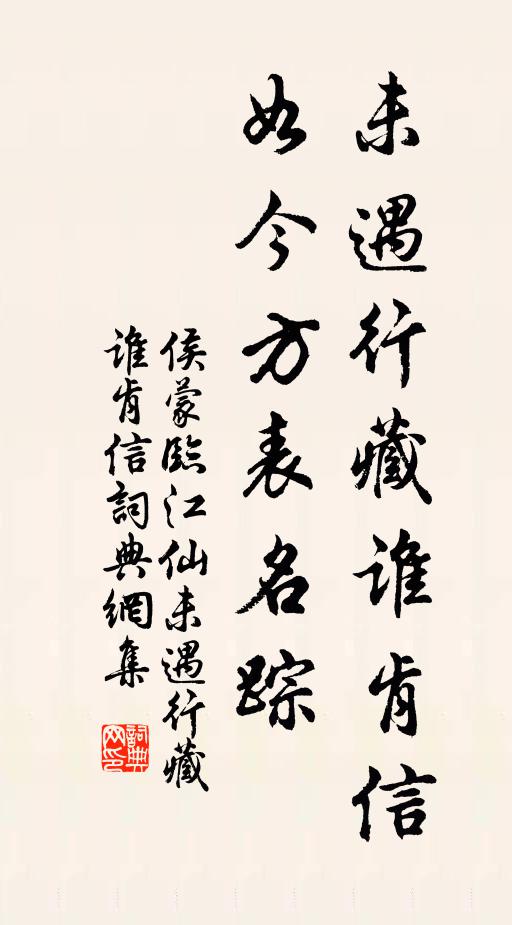 未遇行藏谁肯信
如今方表名踪
侯蒙臨江仙未遇行藏
谁肯信詞典網集
詞典
网印